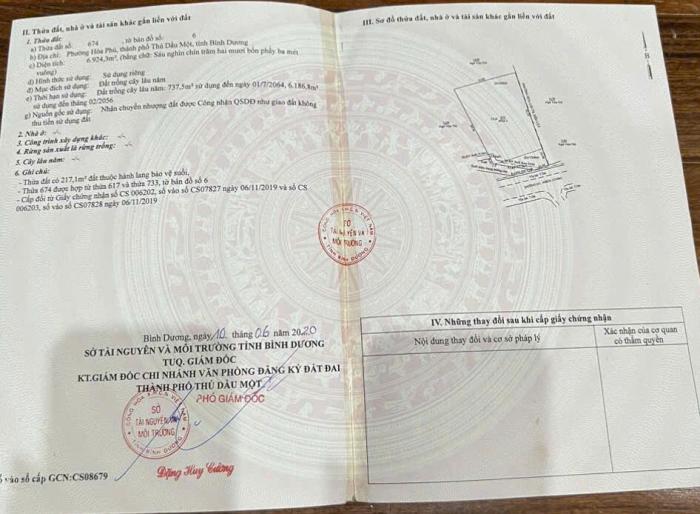 II. Thửa đất, nhà ở và tài sản khác gắn liền với đất
1. Thửa đất:
a) Thửa đất số: 674 , tờ bản đồ số: 6
b) Địa chỉ: Phường Hòa Phú, thành phố Thủ Dầu Một, tỉnh Bình Dương
c) Diện tích: 6.924,3m², (bằng chữ: Sáu nghìn chín trăm hai mươi bốn phẩy ba mét
vuông)
d) Hình thức sử dụng: Sử dụng riêng
đ) Mục đích sử dụng: Đất trồng cây lâu năm
e) Thời hạn sử dụng: Đất trồng cây lâu năm: 737,5m² sử dụng đến ngày 01/7/2064, 6.186,8m²
sử dụng đến tháng 02/2056
g) Nguồn gốc sử dụng: Nhận chuyển nhượng đất được Công nhận QSDĐ như giao đất không
thu tiền sử dụng đất
2. Nhà ở: -/-
3. Công trình xây dựng khác: -/-
4. Rừng sản xuất là rừng trồng: -/-
5. Cây lâu năm: -/-
6. Ghi chú:
- Thửa đất có 217,1m² đất thuộc hành lang bảo vệ suối,
- Thửa 674 được hợp từ thửa 617 và thửa 733, tờ bản đồ số 6
- Cấp đổi từ Giấy chứng nhận số CS 006202, số vào sổ CS07827 ngày 06/11/2019 và số CS
006203, số vào sổ CS07828 ngày 06/11/2019
Bình Dương, ngày 10 tháng 06 năm 2020
SỞ TÀI NGUYÊN VÀ MÔI TRƯỜNG TỈNH BÌNH DƯƠNG
TUQ. GIÁM ĐỐC
KT.GIÁM ĐỐC CHI NHÁNH VĂN PHÒNG ĐĂNG KÝ ĐẤT ĐAI
THÀNH PHỐ THỦ DẦU MỘT
PHÓ GIÁM ĐỐC
SỞ
TÀI NGUYÊN
MÔI TRƯỜNG
TỈNH BÌNH DƯƠNG
Đặng Huy Cường
ố vào sổ cấp GCN:CS08679
III. Sơ đồ thửa đất, nhà ở và tài sản khác gắn liền với đất
SỞ
TÀI NGUYÊN VÀ
MÔI TRƯỜNG
TỈNH BÌNH DƯƠNG
IV. Những thay đổi sau khi cấp giấy chứng nhận
Nội dung thay đổi và cơ sở pháp lý
Xác nhận của cơ quan
có thẩm quyền